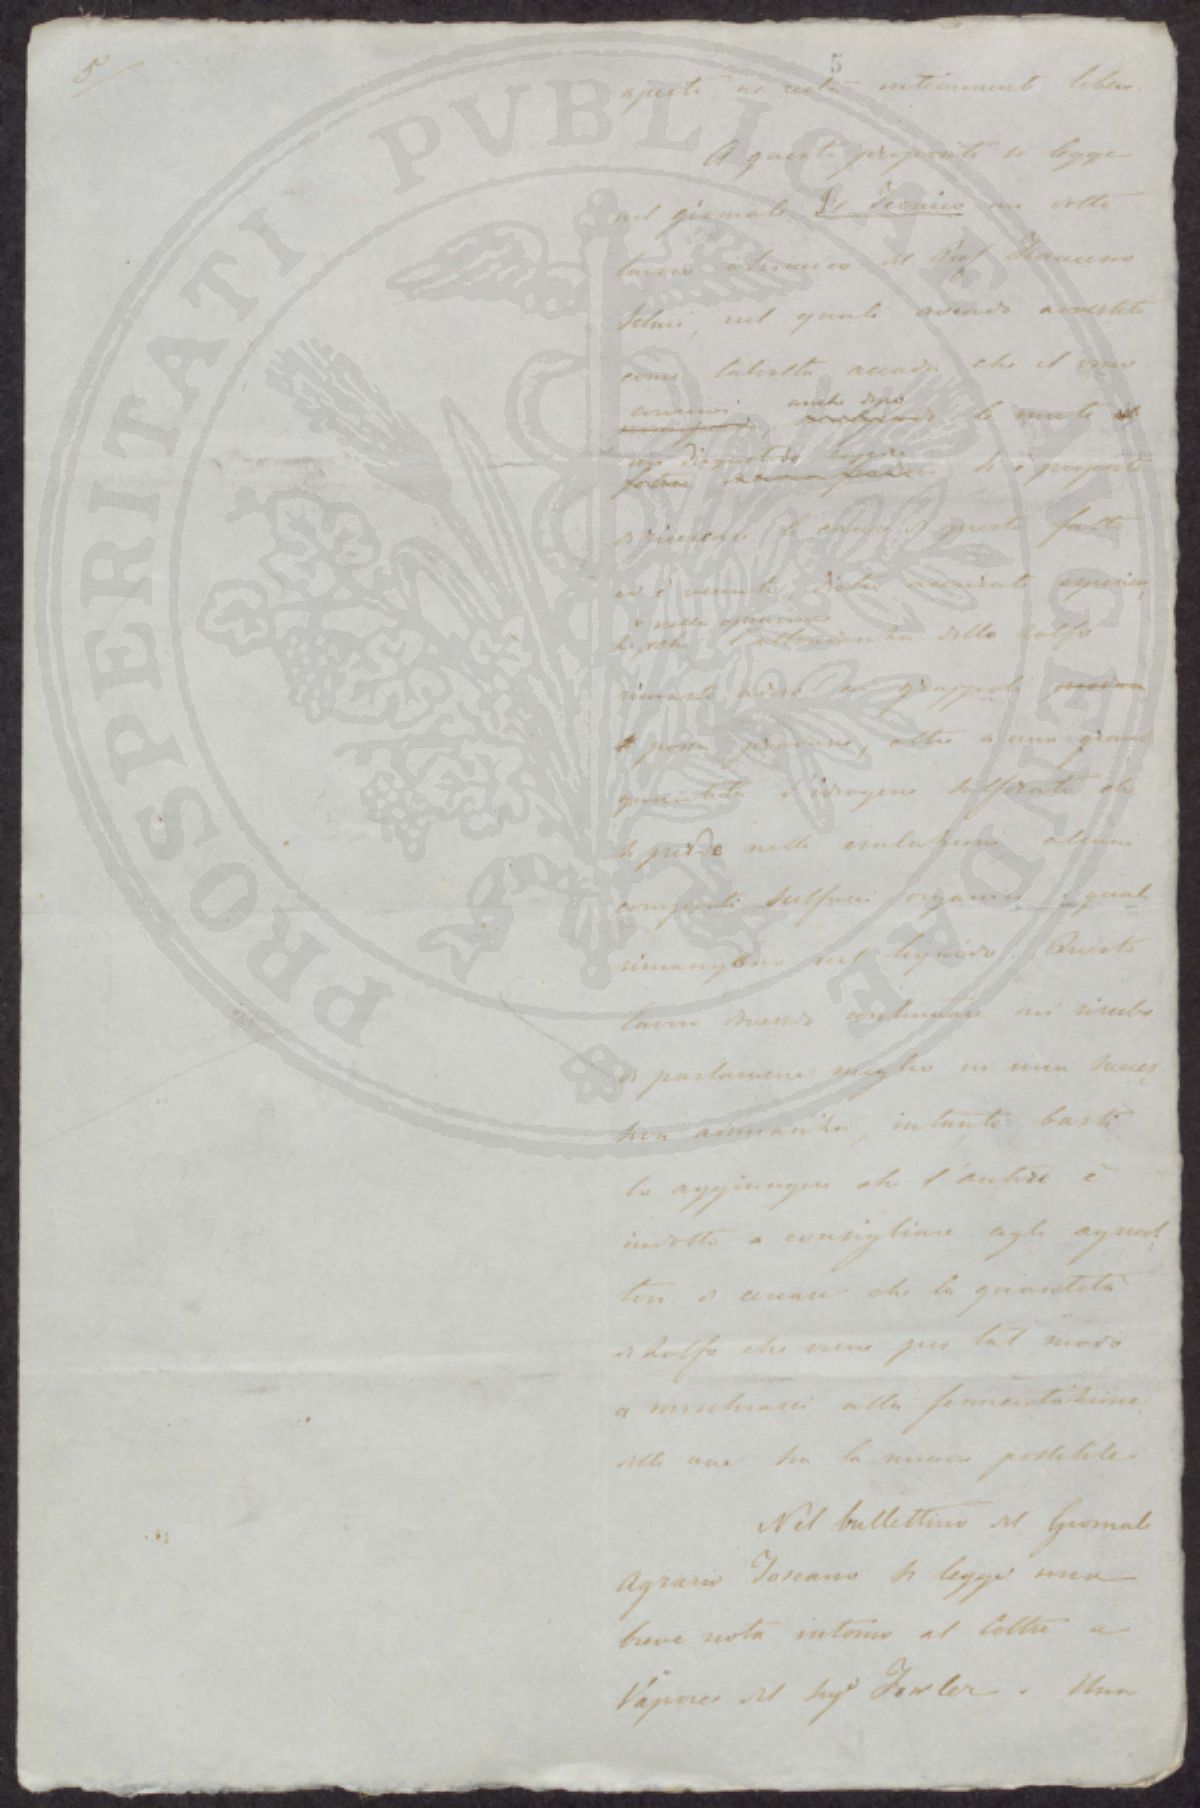 5
5
aperto ne resta interamente libero.
A questo proposito si legge
nel giornale Il Tecnico un dotto
lavoro chimico del Prof. Francesco
Selmi, nel quale avendo avvertito
come talvolta accada che il vino
conservi anche dopo le mute
un disgustoso si è proposto
di ricercare le cause di questo fatto
ed è venuto, dietro accurate esperien
nella opinione
ze, che dello zolfo
rimasto adeso ai grappoli
possa produrre, oltre a una gran
quantità d'idrogeno solforato che
si perde nelle esalazioni alcuni
composti sulfurei organici i quali
rimangono nel liquido. Questo
lavoro dovendo continuare mi riserbo
di parlarvene meglio in una succes
siva adunanza, intanto basti
lo aggiungere che l'autore è
indotto a consigliare agli agricol
tori di curare che la quantità
di zolfo che viene per tal modo
a mischiarsi alla fermentazione
delle uve sia la minore possibile.
Nel bullettino del Giornale
Agrario Toscano si legge una
breve nota intorno al Coltro a
Vapore del Sigr Fowler. Una
PROSPERITATI PVBLICAE AVGENDAE